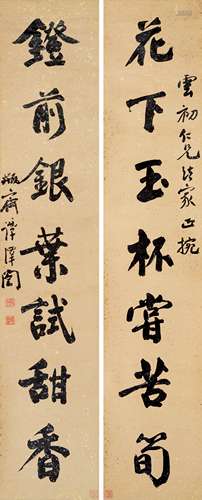 花下玉杯嘗苦筍
雲初仁兄法家正腕
鐙前銀葉試甜香
譚澤闓